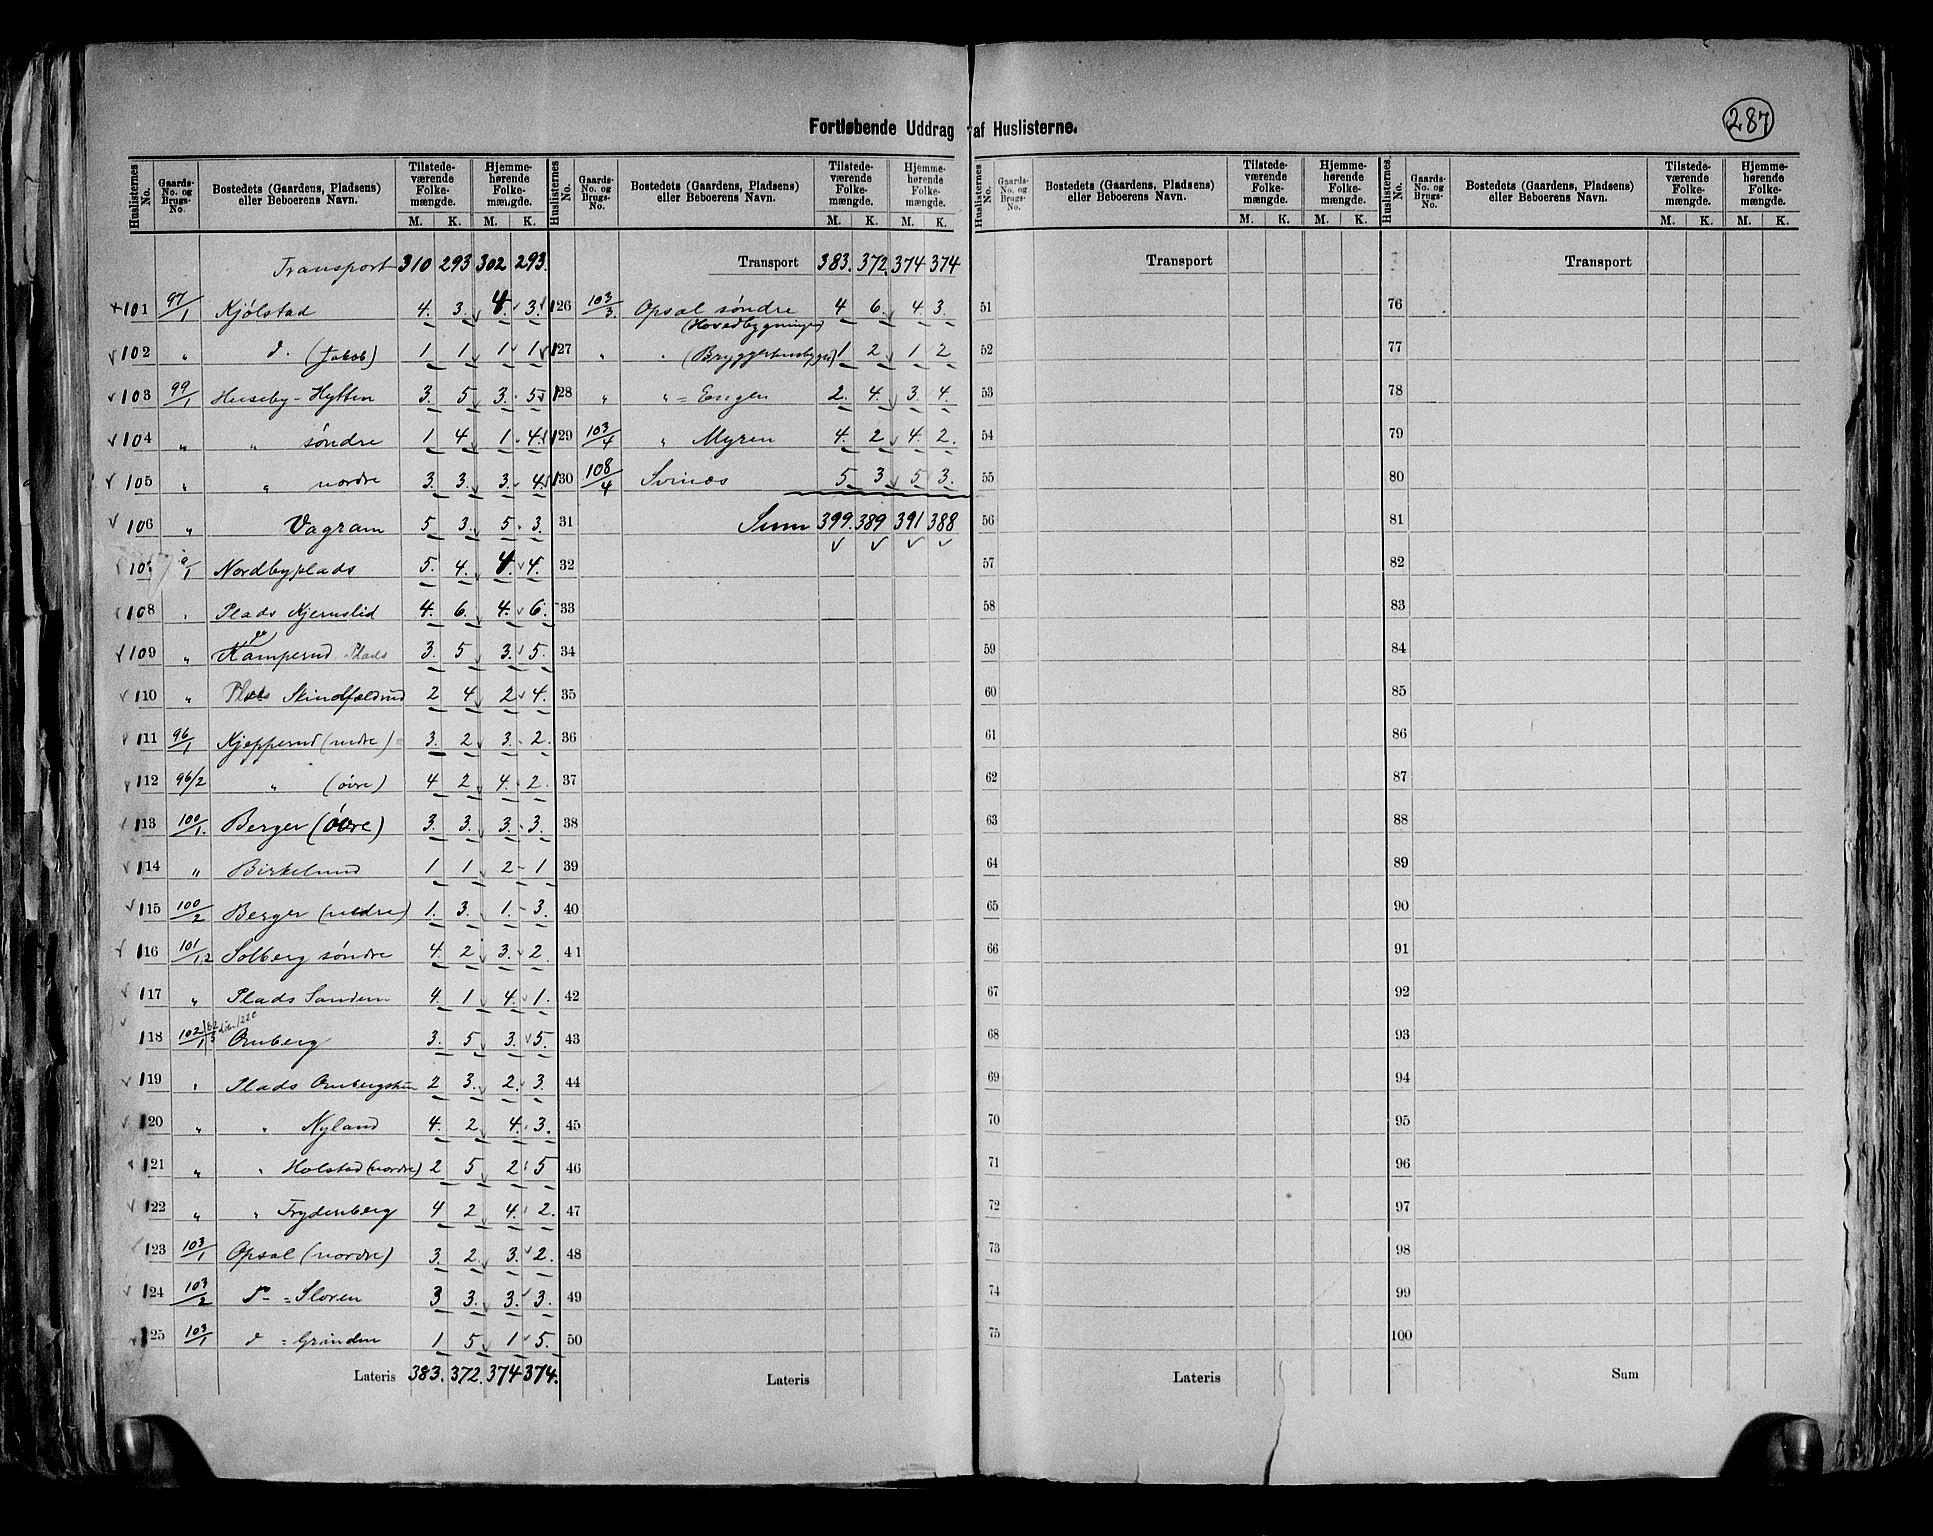 Fortløbende Uddrag af Huslisterne.
287
Huslisternes No. Gaards-No. og Brugs-No. Bostedets (Gaardens, Pladsens) eller Beboerens Navn. Tilstedeværende Folkemængde. M. K. Hjemmehørende Folkemængde. M. K.
Transport 310 293 302 293.
101 97/1 Kjølstad 4. 3. 4 3.
102 " d. (Jakob) 1 1 1 1
103 99/1 Huseby-Hytten 3. 5 3. 5
104 " " søndre 1 4 1 4.
105 " " nordre 3. 3. 3. 4.
106 " Vagram 5 3. 5. 3.
107 Nordbyplads 5. 4. 4. 4.
108 Plads Kjernslid 4. 6. 4. 6.
109 " Kamperud Plads 3. 5 3. 5.
110 " Plads Skindfældrud 2 4 2 4.
111 96/1 Kjepperud (nedre) 3. 2 3. 2.
112 96/2 " (övre) 4 2 4. 2.
113 100/1. Berger (övre) 3. 3. 3. 3.
114 " Birkelund 1 1 2 1
115 100/2 Berger (nedre) 1. 3. 1. 3.
116 101/1.2 Solberg søndre 4. 2 3. 2.
117 " Plads Sanden 4. 1 4. 1.
118 102/1 Omberg 3. 5 3. 5.
119 Plads Ombergshun 2 3. 2. 3.
120 " " Nyland 4. 2 4. 3.
121 " " Holstad (nordre) 2 5 2 5
122 " " Frydenberg 4 2 4. 2.
123 103/1 Opsal (nordre) 3. 2. 3. 2.
124 103/2 Do = Sloren 3 3. 3. 3.
125 103/1 d = Grinden 1 5 1 5.
Lateris 383. 372. 374 374.
Huslisternes No. Gaards-No. og Brugs-No. Bostedets (Gaardens, Pladsens) eller Beboerens Navn. Tilstedeværende Folkemængde. M. K. Hjemmehørende Folkemængde. M. K.
Transport 383. 372. 374 374
126 103/3. Opsal søndre 4 6. 4. 3.
(Hovedbygningen)
127 " " (Bryggerhusbygn) 1 2 1 2
128 " " = Engen 2. 4. 3. 4.
129 103/4 " Myren 4. 2 4. 2.
130 108/4 Svinæs 5. 3 5 3.
31 Sum 399. 389 391 388
32
33
34
35
36
37
38
39
40
41
42
43
44
45
46
47
48
49
50
Lateris
Huslisternes No. Gaards-No. og Brugs-No. Bostedets (Gaardens, Pladsens) eller Beboerens Navn. Tilstedeværende Folkemængde. M. K. Hjemmehørende Folkemængde. M. K.
Transport
51
52
53
54
55
56
57
58
59
60
61
62
63
64
65
66
67
68
69
70
71
72
73
74
75
Lateris
Huslisternes No. Gaards-No. og Brugs-No. Bostedets (Gaardens, Pladsens) eller Beboerens Navn. Tilstedeværende Folkemængde. M. K. Hjemmehørende Folkemængde. M. K.
Transport
76
77
78
79
80
81
82
83
84
85
86
87
88
89
90
91
92
93
94
95
96
97
98
99
100
Sum